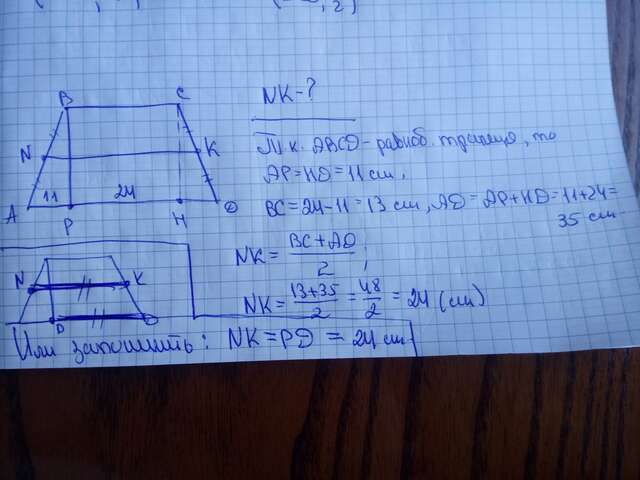 B C
N K
11 24
A P H D
NK-?
Т.к. ABCD - равноб. трапеция, то
AP=HD=11 см,
BC=24-11=13 см, AD=AP+HD=11+24=
35 см
NK = BC+AD / 2 ;
NK = 13+35 / 2 = 48 / 2 = 24 (см)
N K
D
Или запомнить: NK=PD = 24 см